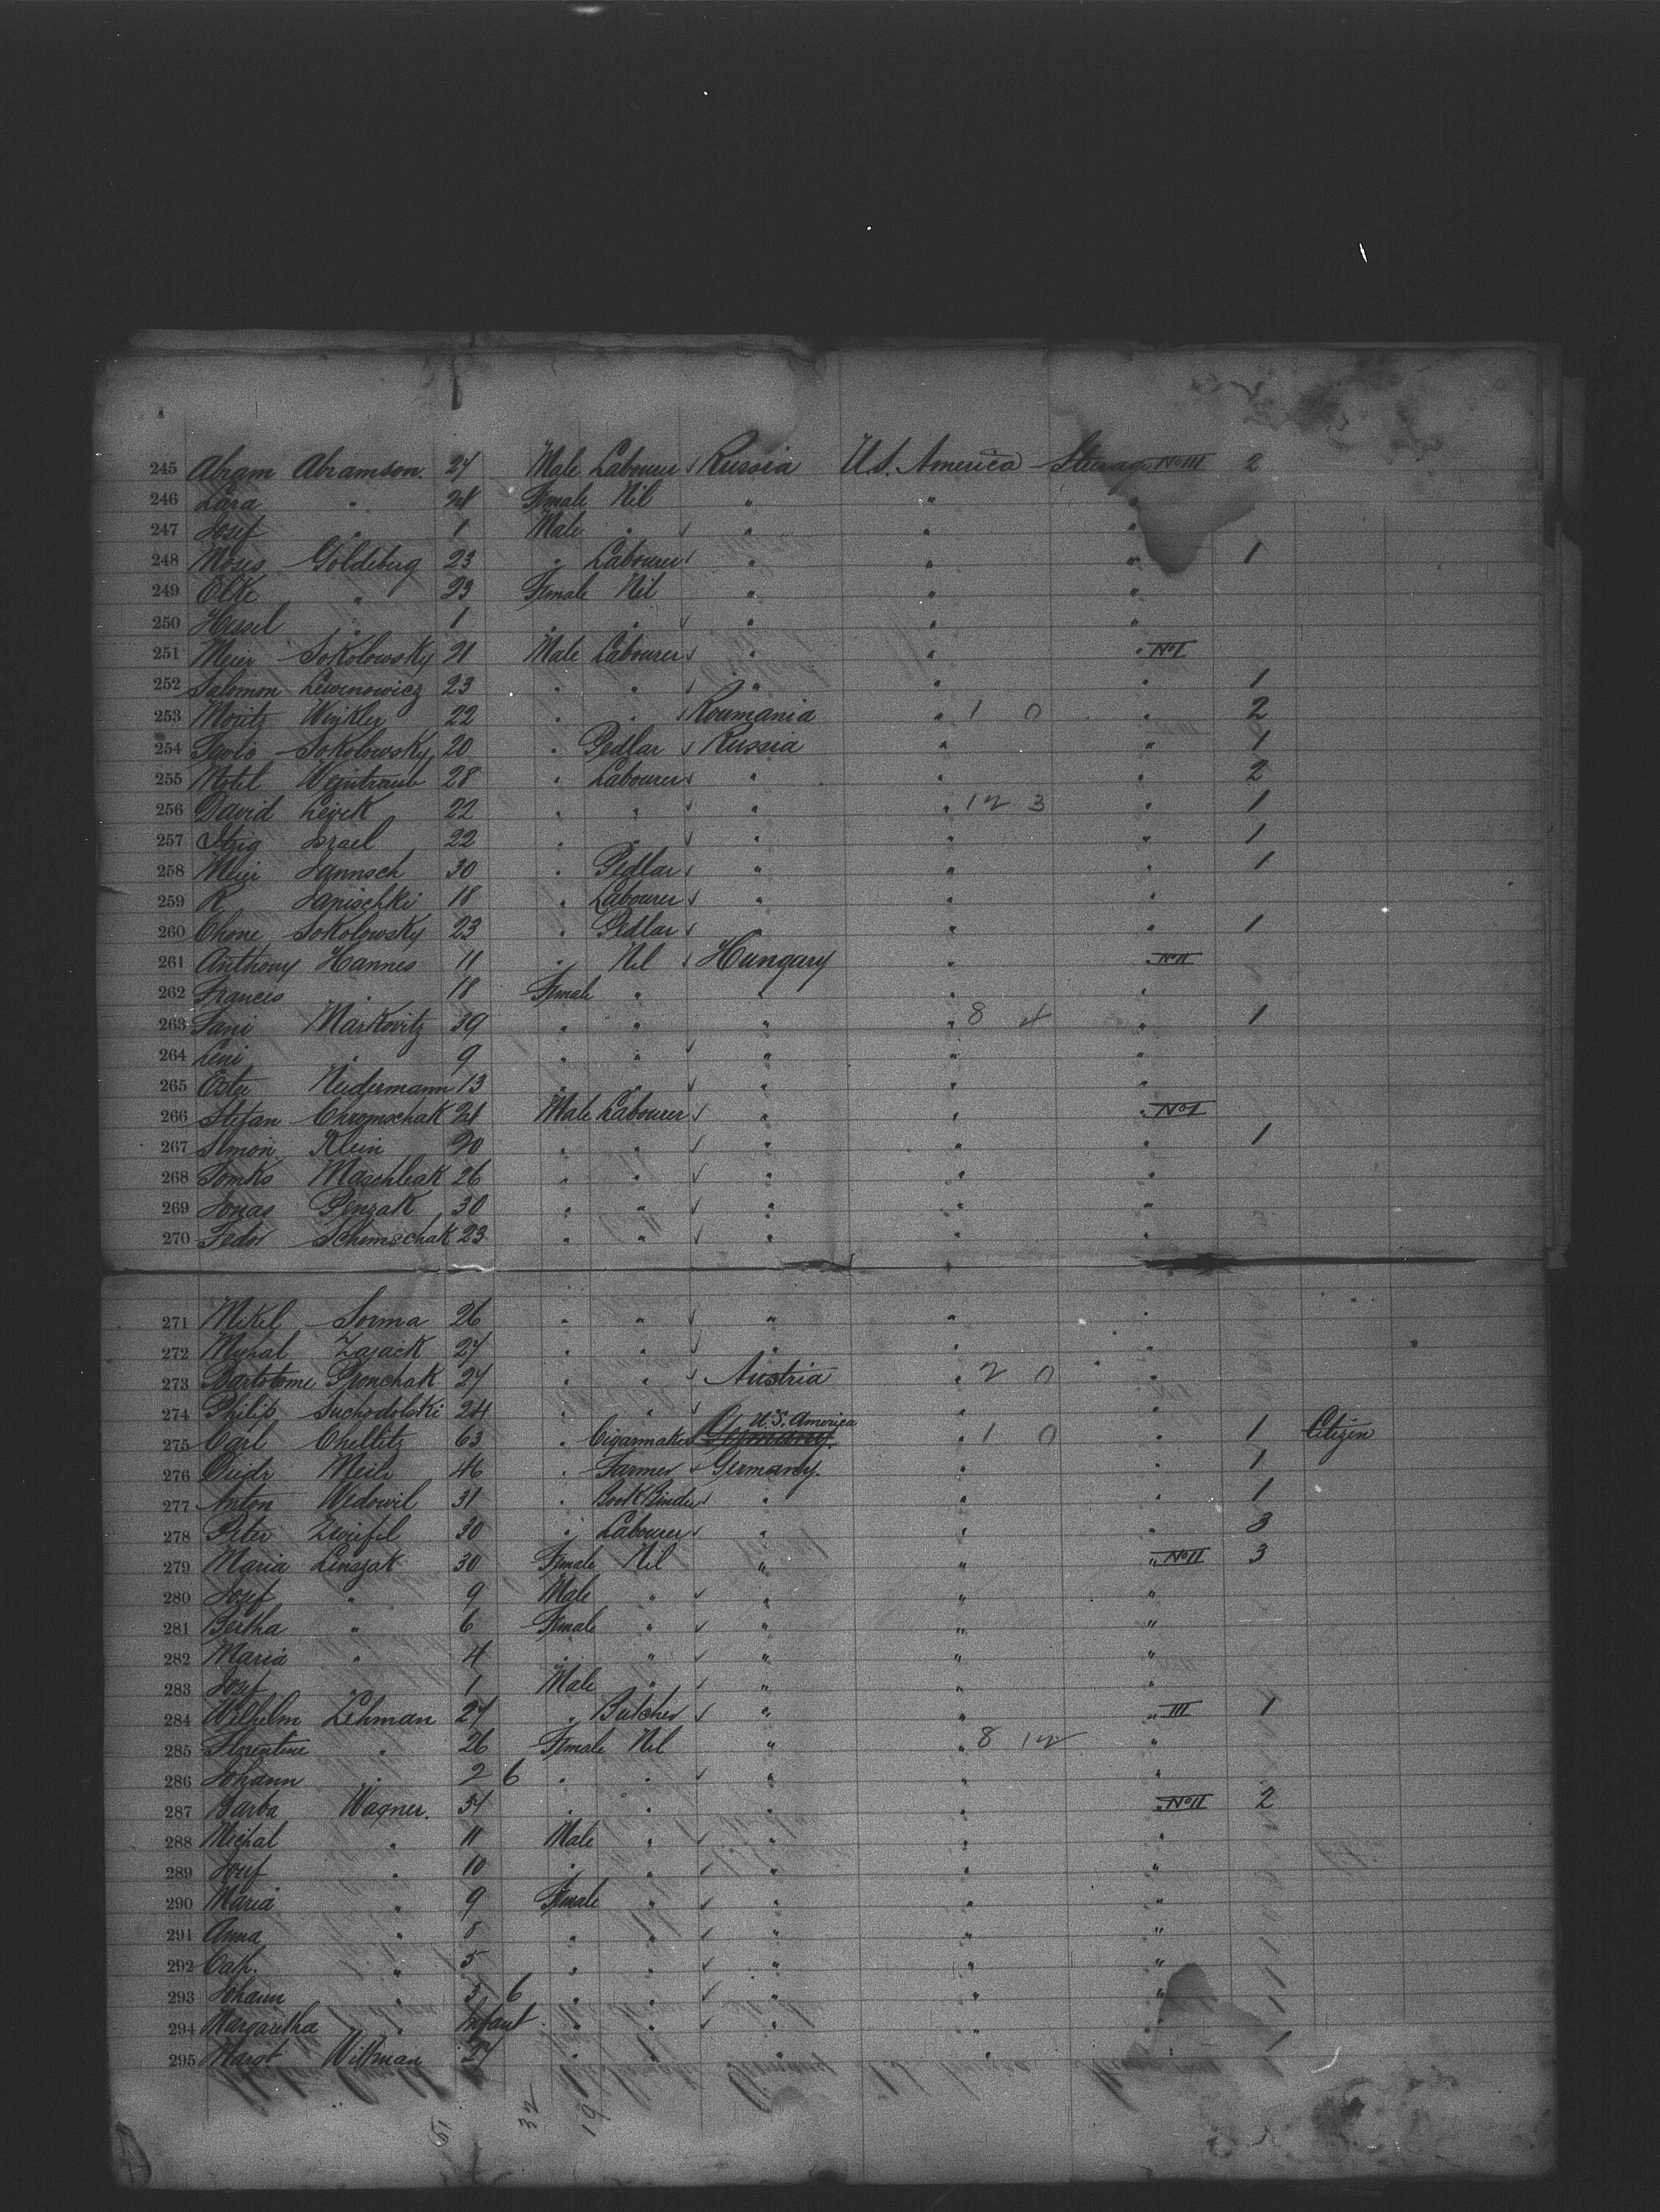 245 Abram Abramson. 27 Male Labourer Russia U.S. America Steerage No III 2
246 Lara " 24 Female Nil " " "
247 Josef " 1 Male " " " "
248 Moses Goldeberg 23 " Labourer " " " 1
249 Elke " 23 Female Nil " " "
250 Hessel " 1 " " " " "
251 Meier Sokolowsky 21 Male Labourer " " " No I
252 Salomon Lewinowicz 23 " " " " " 1
253 Moritz Winkler 22 " " Roumania " 1 0 " 2
254 Sokolowsky 20 " Pedlar Russia " " 1
255 Motel Weintraub 28 " Labourer " " " 2
256 David 22 " " " " 12 3 " 1
257 Israel 22 " " " " " 1
258 Meier 30 " Pedlar " " " 1
259 R Janischki 18 " Labourer " " "
260 Chone Sokolowsky 23 " Pedlar " " " 1
261 Anthony Hannes 11 " Nil Hungary " " No II
262 Frances " 18 Female " " " "
263 Fani Markovitz 39 " " " " 8 4 " 1
264 Leni " 9 " " " " "
265 Ester Neidermann 13 " " " " "
266 Stefan Chromschak 21 Male Labourer " " " No I
267 Simon Klein 20 " " " " " 1
268 Tomko Maschleak 26 " " " " "
269 Jonas Penzak 30 " " " " "
270 Fedor Schemschak 23 " " " " "
271 Mikel Sorma 26 " " " " "
272 Myhal Zajack 27 " " " " "
273 Bartolome Pronchak 27 " " Austria " 2 0 "
274 Philip Suchodolski 24 " " " " "
U.S. America
275 Carl Chellitz 63 " Cigarmaker Germany. " 1 0 " 1 Citizen
276 Meile 46 " Farmer Germany. " " 1
277 Anton Wedowil 31 " Book Binder " " " 1
278 Peter Zweifel 30 " Labourer " " " 3
279 Maria Linszak 30 Female Nil " " " No II 3
280 Josef " 9 Male " " " "
281 Bertha " 6 Female " " " "
282 Maria " 4 " " " " "
283 Josef " 1 Male " " " "
284 Wilhelm Lehman 27 " Butcher " " " III 1
285 Florentine " 26 Female Nil " " 8 12 "
286 Johann " 2 6 " " " " "
287 Barba Wagner. 34 " " " " " No II 2
288 Michal " 11 Male " " " "
289 Josef " 10 " " " " "
290 Maria " 9 Female " " " "
291 Anna " 8 " " " " "
292 Cath. " 5 " " " " "
293 Johann " 3 6 " " " " "
294 Margaretha " Infant " " " " "
295 Margt Willman 27 " " " " " 1
51 32 19